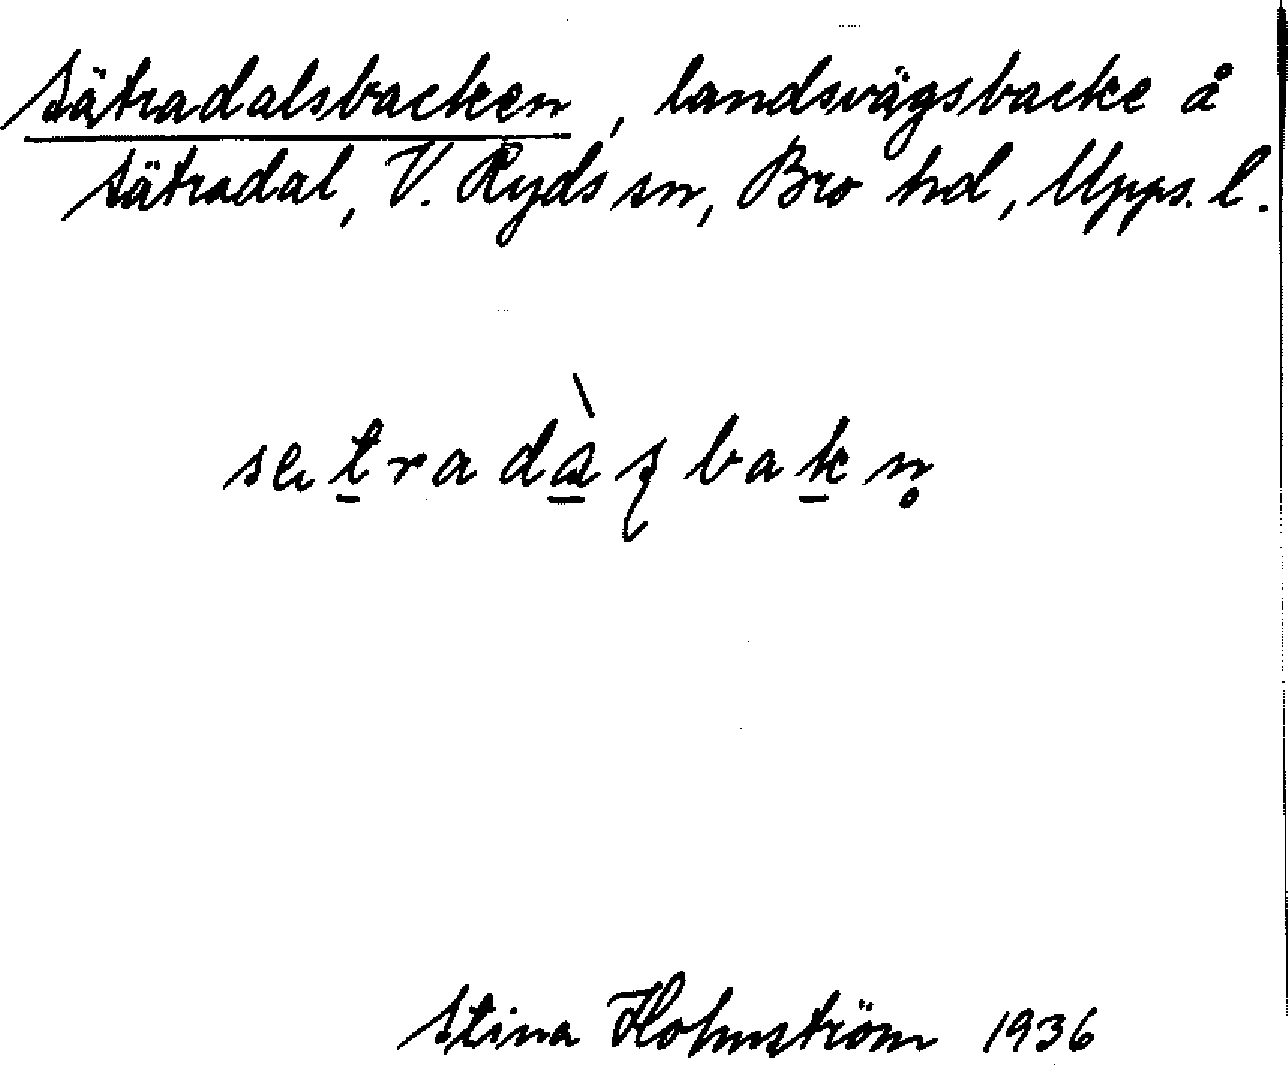 Sätradalsbacken, landsvägsbacke å
Sätradal, V. Ryds sn, Bro hd, Upps. l.
setradàʂbakn̥
Stina Holmström 1936